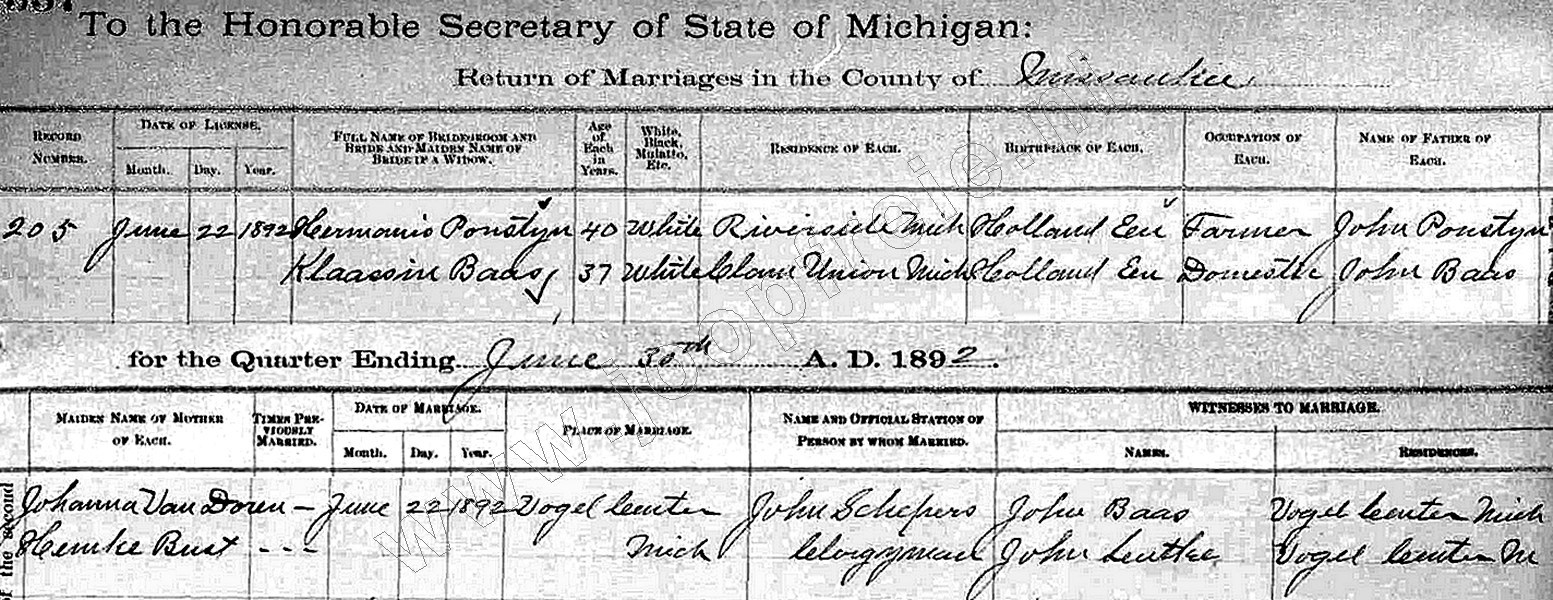 To the Honorable Secretary of State of Michigan:
Return of Marriages in the County of Missaukee
RECORD NUMBER. DATE OF LICENSE. Month. Day. Year. FULL NAME OF BRIDEGROOM AND BRIDE AND MAIDEN NAME OF BRIDE IF A WIDOW. Age of Each in Years. White, Black, Mulatto, Etc. RESIDENCE OF EACH. BIRTHPLACE OF EACH. OCCUPATION OF EACH. NAME OF FATHER OF EACH.
205 June 22 1892 Hermanis Ponstyn 40 White Riverside Mich Holland Eu Farmer John Ponstyn
Klaassin Baas 37 White Clam Union Mich Holland Eu Domestic John Baas
for the Quarter Ending June 30th A. D. 1892.
MAIDEN NAME OF MOTHER OF EACH. TIMES PREVIOUSLY MARRIED. DATE OF MARRIAGE. Month. Day. Year. PLACE OF MARRIAGE. NAME AND OFFICIAL STATION OF PERSON BY WHOM MARRIED. WITNESSES TO MARRIAGE. NAMES. RESIDENCES.
Johanna Van Doren - June 22 1892 Vogel Center John Schepers John Baas Vogel Center Mich
Hemke Bust - - - Mich Clergyman John Vogel Center M
of the second
www.joopfreie.nl